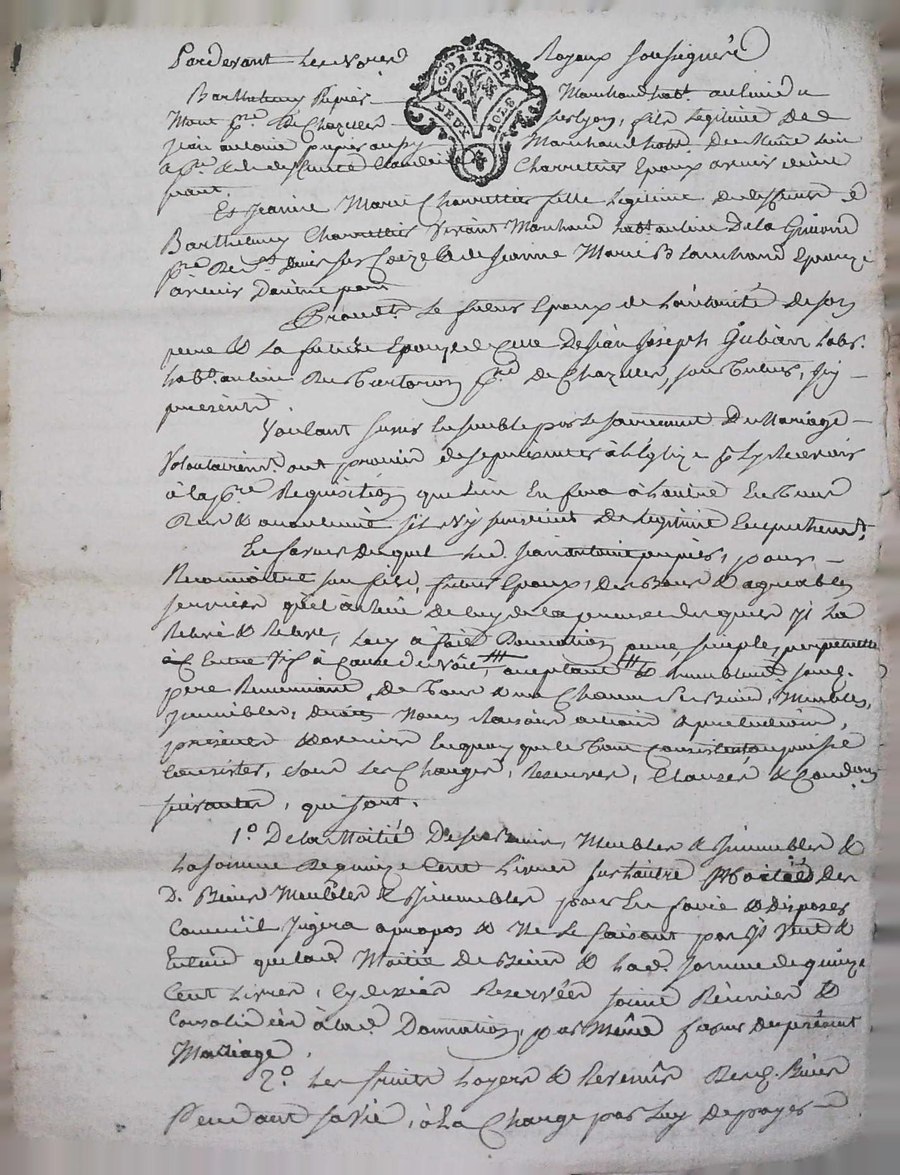 Pardevant Les Nores Royaux soussignés
G. DE LYON
DEUX SOLS
Barthelemy Pupier Marchand habt. au lieu de
Mont pse. de Chazelles sur Lyon, fils Legitime de
Jean antoine pupier aussy Marchand habt. Du même lieu
& pse. & de deffunte Claudine Charretier Epoux avenir d'une
part.
Et Jeanne Marie Charretier fille Legitime de deffunt
Barthelemy Charretier vivant Marchand habt. au lieu De la Giraud
pse. De St. Denis sur Coize & de Jeanne Marie Blanchard Epouze
avenir Dautre part
Procedt. Le futur Epoux de L'autorité de son
pere & La future Epouze de celle De Jean Joseph Labr.
habt. au lieu De pse. De Chazelles, son Tuteur, icy
presents
Voulant s'unir Ensemble par Le sacrement De Mariage
Volontairemt. ont promis de se presenter à L'Eglize p. Ly Recevoir
à la pre. Requisition que L'un En fera à L'autre En tems
Du & s'il n'y survient De Legitime Empechemt.
En faveur Duquel Led. Jean antoine pupier, pour
Reconnoitre son fils, futur Epoux, Des Bons & agreables
services quel à de luy de la preuve desquels il La
Relevé & Releve, Luy à fait Donnation pure, simple, perpetuelle
& Entre Vifs à Cause de Noce, acceptant & Remerciant sond.
pere De Tous & un Chacun Ses Biens, Meubles,
immeubles, Droits Noms Raisons actions & pretentions,
presents & avenirs En quoy que le Tout Consiste & puisse
Consister, sous Les Charges, Reserves, Clauses & Condons
suivantes, qui sont.
1.° De la Moitié De ses Biens, Meubles & immeubles &
La somme De quinze Cent Livres sur L'autre Moitié Des
D. Biens Meubles & immeubles pour En sa vie & Disposer
Comme il Jugera apropos & Ne Le faisant pas il Veut &
Entend que lad. Moitié De Biens & Lad. somme de quinze
Cent Livres, Cy dessus Reservées soient Reunies &
Consolidées à la d. Donnation, par Même faveur Du présent
Mariage.
2.° Les fruits Loyers & Revenus Desd. Biens
Pendant sa vie, à La Charge par Luy De payer